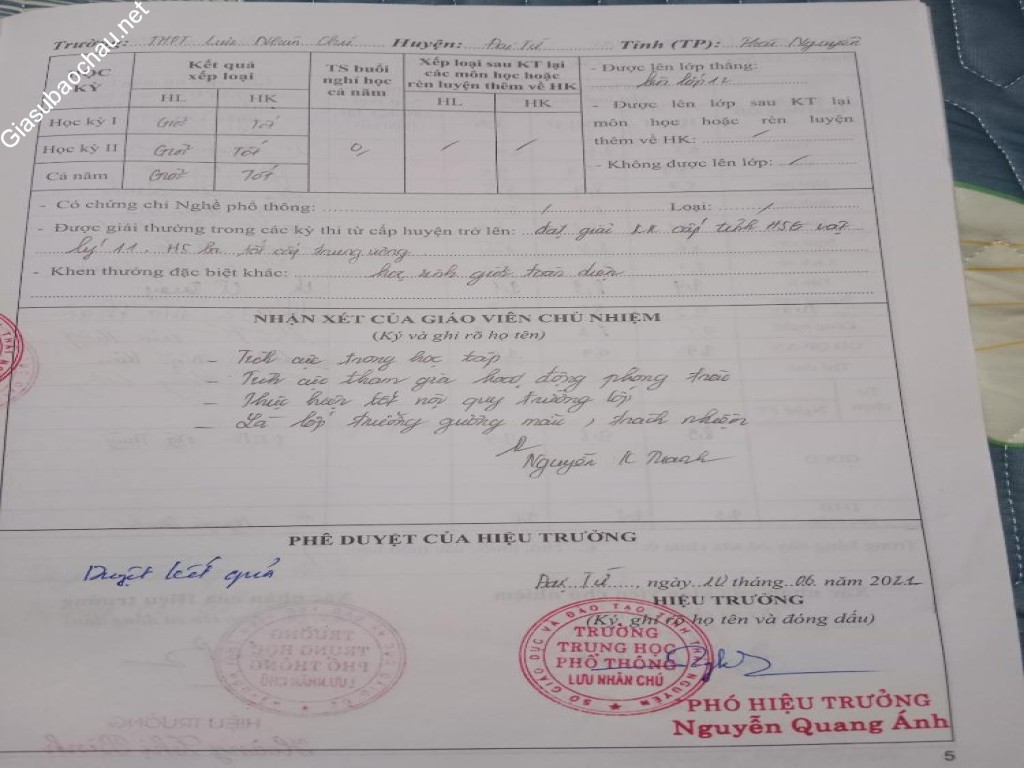 Giasubaochau.net
Trường: THPT Lưu Nhân Chú Huyện: Đại Từ Tỉnh (TP): Thái Nguyên
HỌC KỲ
Kết quả xếp loại
HL HK
TS buổi nghỉ học cả năm
Xếp loại sau KT lại các môn học hoặc rèn luyện thêm về HK
HL HK
- Được lên lớp thẳng:
lên lớp 12
- Được lên lớp sau KT lại
môn học hoặc rèn luyện
thêm về HK: /
- Không được lên lớp: /
Học kỳ I Giỏi Tốt
Học kỳ II Giỏi Tốt 0 / /
Cả năm Giỏi Tốt
- Có chứng chỉ Nghề phổ thông: / Loại: /
- Được giải thưởng trong các kỳ thi từ cấp huyện trở lên: đạt giải KK cấp tỉnh HSG vật
lý 11. HS ba tốt cấp trung ương
- Khen thưởng đặc biệt khác: học sinh giỏi toàn diện
NHẬN XÉT CỦA GIÁO VIÊN CHỦ NHIỆM
(Ký và ghi rõ họ tên)
- Tích cực trong học tập
- Tích cực tham gia hoạt động phong trào
- Thực hiện tốt nội quy trường lớp
- Là lớp trưởng gương mẫu, trách nhiệm
Nguyễn K Thanh
PHÊ DUYỆT CỦA HIỆU TRƯỞNG
Duyệt kết quả
Đại Từ, ngày 10 tháng 06 năm 2021
HIỆU TRƯỞNG
(Ký, ghi rõ họ tên và đóng dấu)
SỞ GIÁO DỤC VÀ ĐÀO TẠO TỈNH THÁI NGUYÊN
TRƯỜNG
TRUNG HỌC
PHỔ THÔNG
LƯU NHÂN CHÚ
PHÓ HIỆU TRƯỞNG
Nguyễn Quang Ánh
5